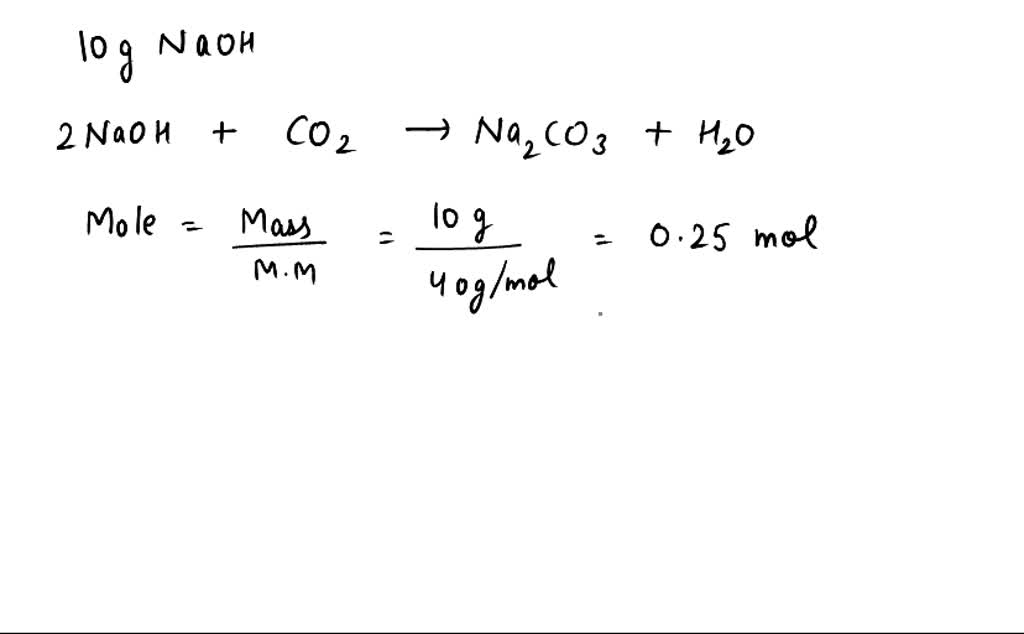 10g NaOH
2NaOH + CO₂ → Na₂CO₃ + H₂O
Mole = Mass / M.M = 10g / 40g/mol = 0.25 mol